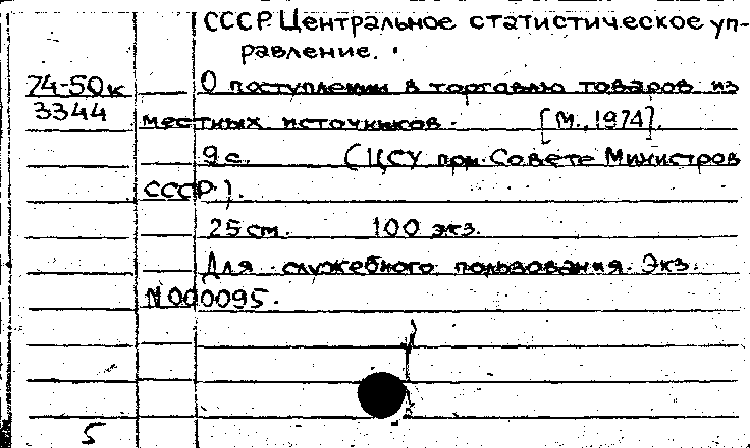 СССР. Центральное статистическое уп-
равление.
74-50к О поступлении в торговлю товаров из
3344 местных источников. [М., 1974].
9 с. (ЦСУ при Совете Министров
СССР).
25 см. 100 экз.
Для служебного пользования. Экз.
N000095.
5